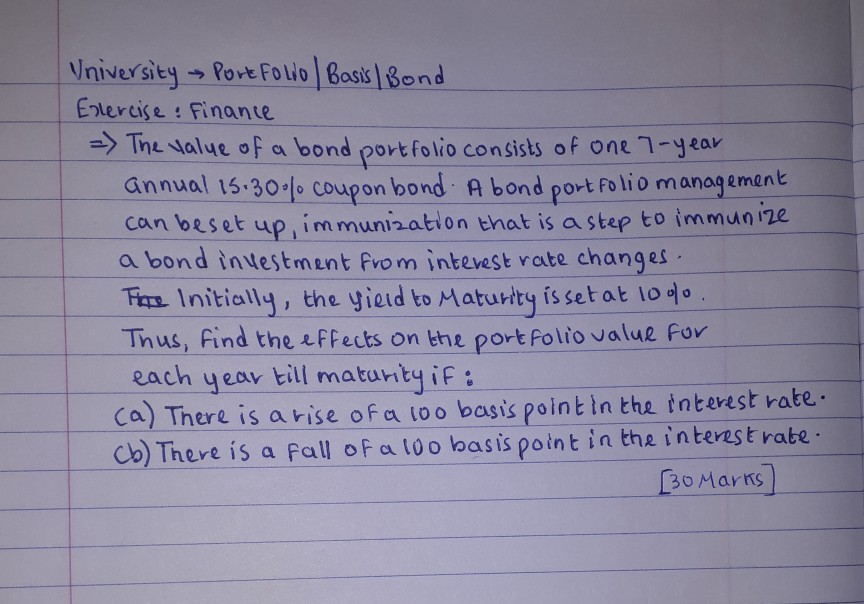 University → Portfolio | Basis | Bond
Exercise : Finance
⇒ The value of a bond portfolio consists of one 7-year
annual 15.30% coupon bond. A bond portfolio management
can be set up, immunization that is a step to immunize
a bond investment from interest rate changes.
Initially, the yield to Maturity is set at 10%.
Thus, find the effects on the portfolio value for
each year till maturity if :
(a) There is a rise of a 100 basis point in the interest rate.
(b) There is a fall of a 100 basis point in the interest rate.
[30 Marks]